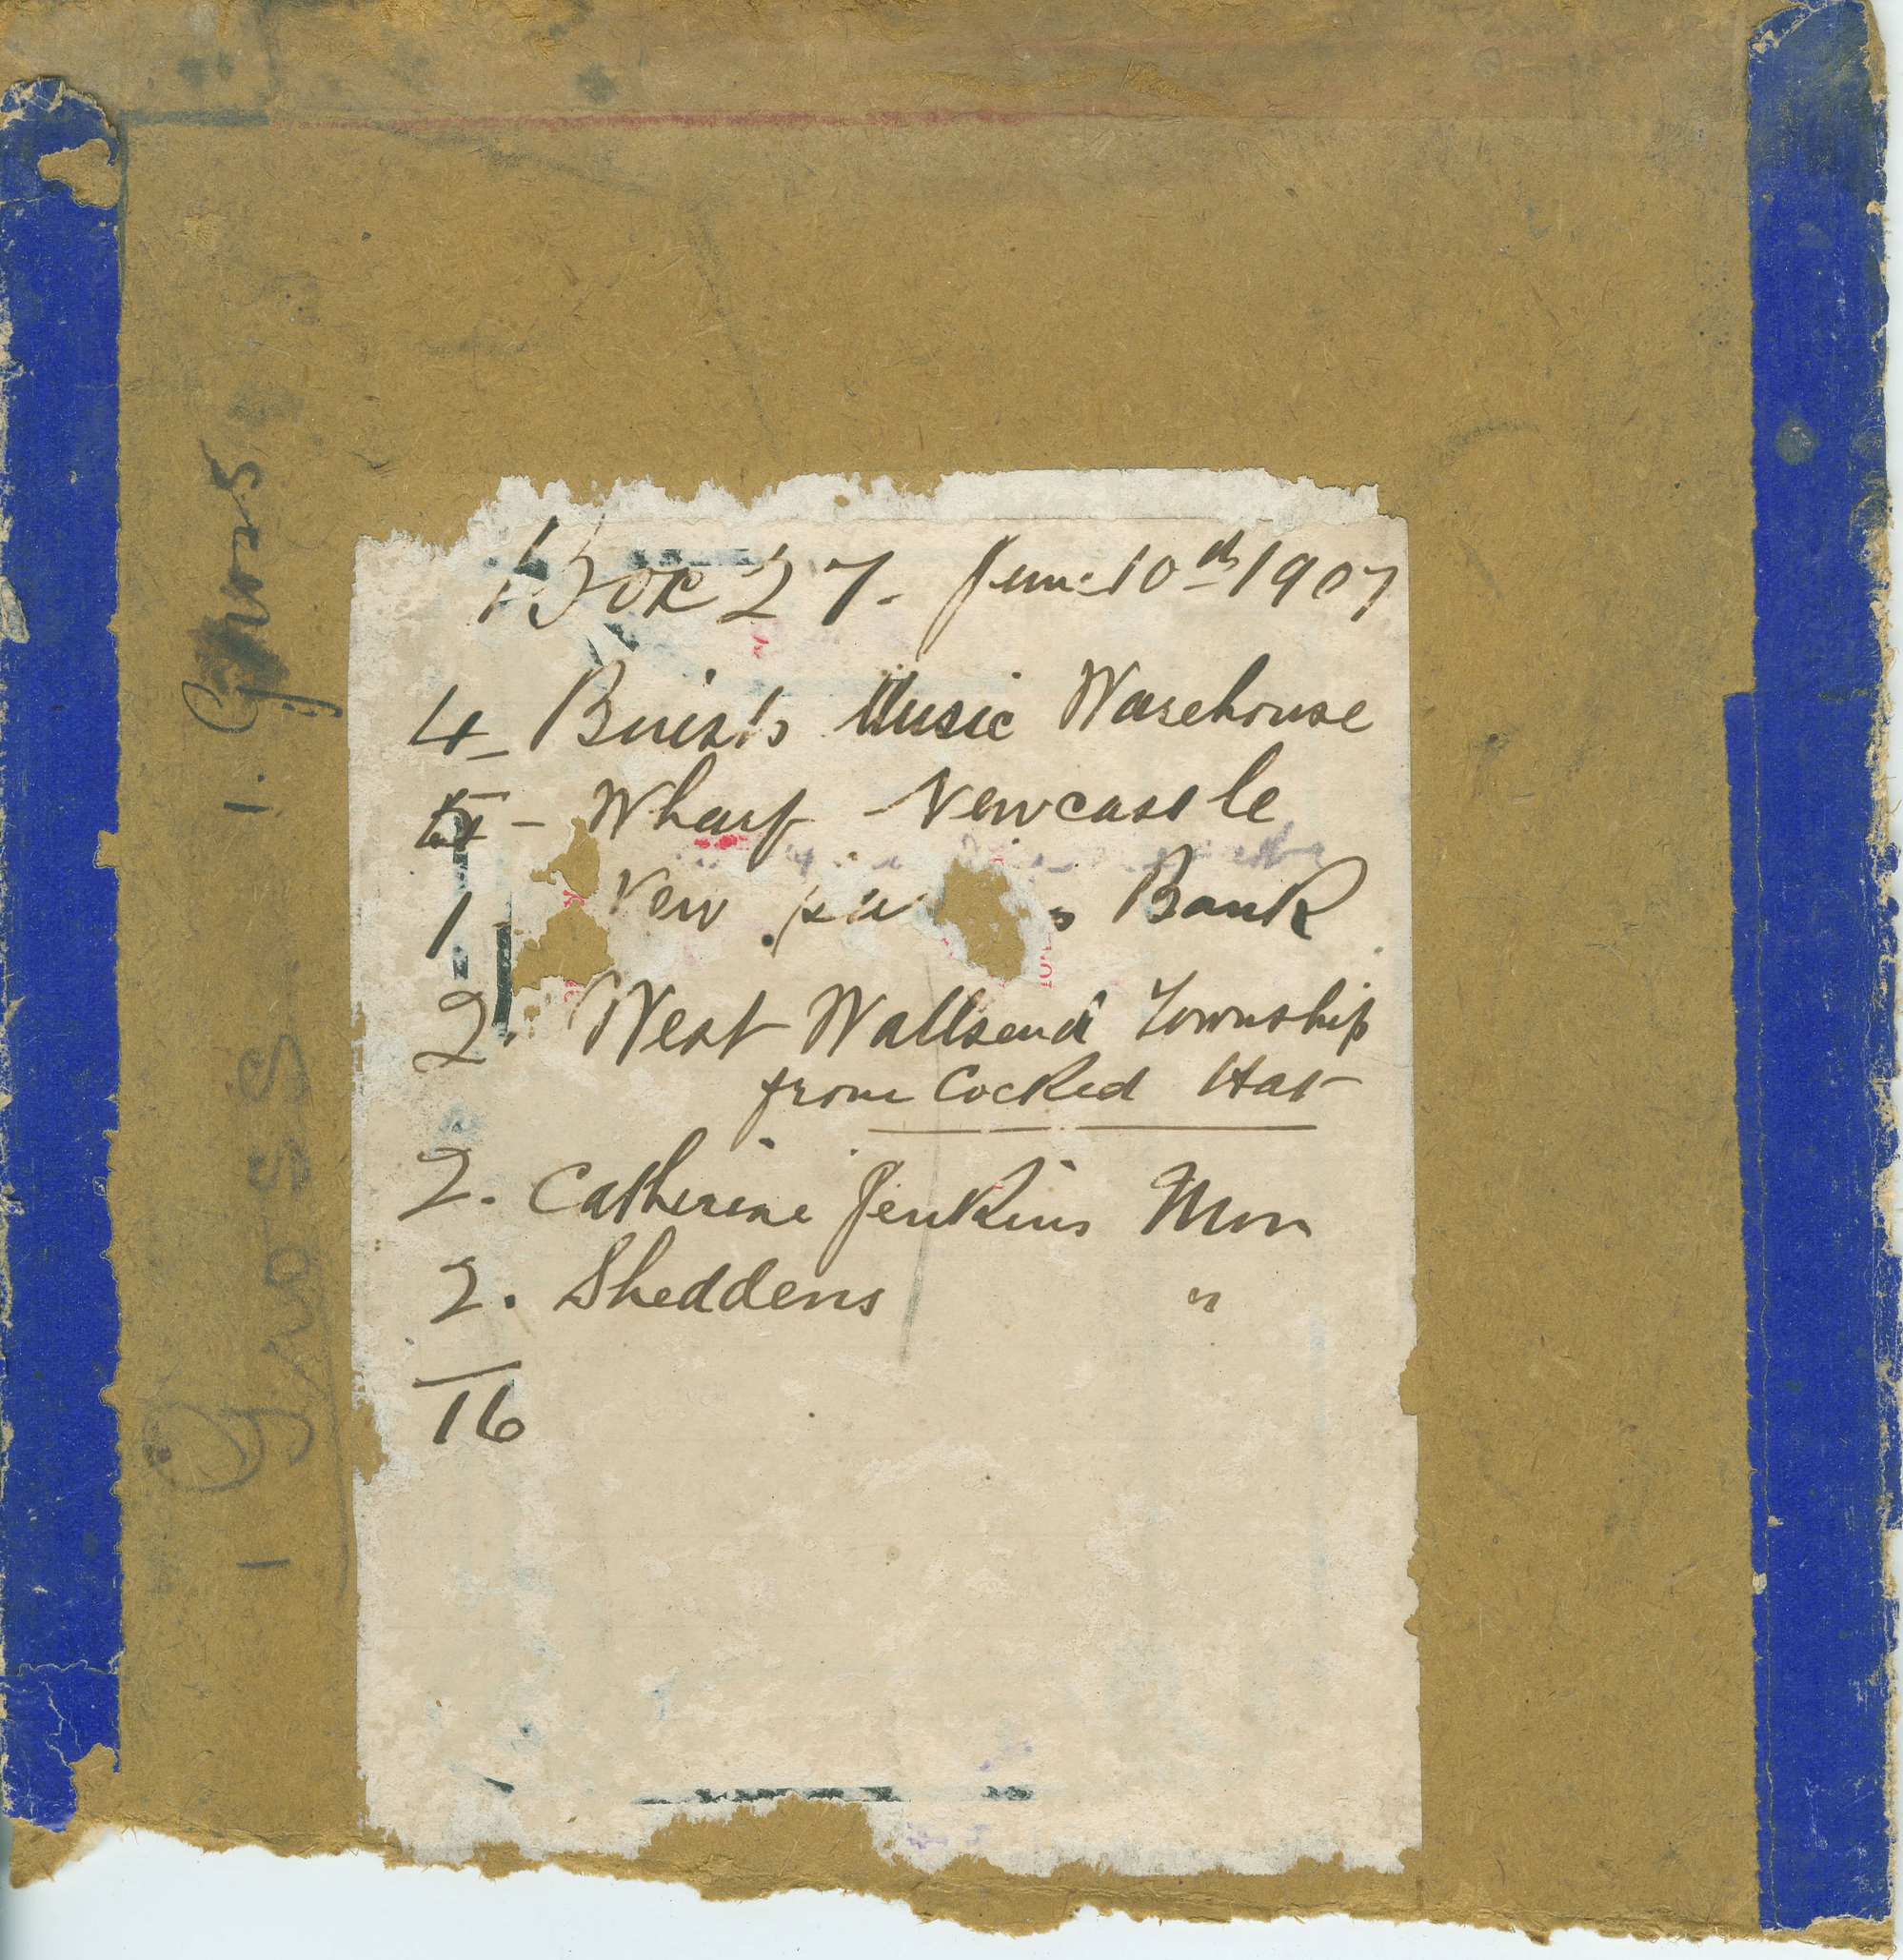 Box 27. June 10th 1907
4 Buist's Music Warehouse
5 - Wharf Newcastle
1 New Bank
2. West Wallsend Township
from Cocked Hat
2. Catherine Jenkins Mon
2. Sheddens "
16
1. Gross
1 Gross